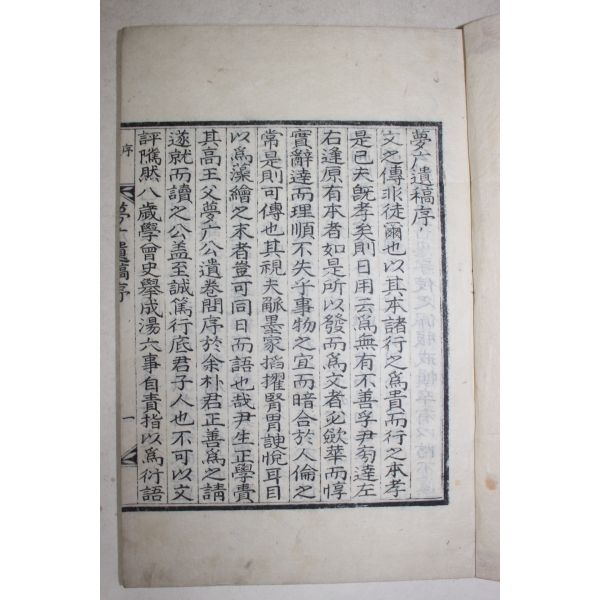 夢广遺稿序
文之傳非徒爾也以其本諸行之爲貴而行之本孝
是已夫旣孝矣則日用云爲無有不善孚尹旁達左
右逢原有本者如是所以發而爲文者必斂華而惇
實辭達而理順不失乎事物之宜而暗合於人倫之
常是則可傳也其視夫觝墨家搯擢腎胃諛悅耳目
以爲藻繪之末者豈可同日而語也哉尹生正學賫
其高王父夢广公遺卷問序於余朴君正善爲之請
遂就而讀之公盖至誠篤行底君子人也不可以文
評隲然八歲學曾史擧成湯六事自責指以爲衍語
序
夢广遺稿序
一